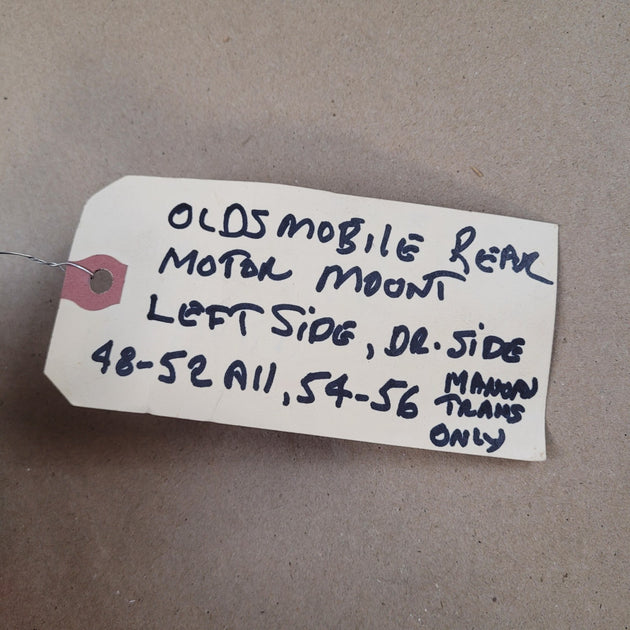 OLDSMOBILE REAR
MOTOR MOUNT
LEFT SIDE, DR. SIDE
48-52 All, 54-56 MANUAL
TRANS
ONLY